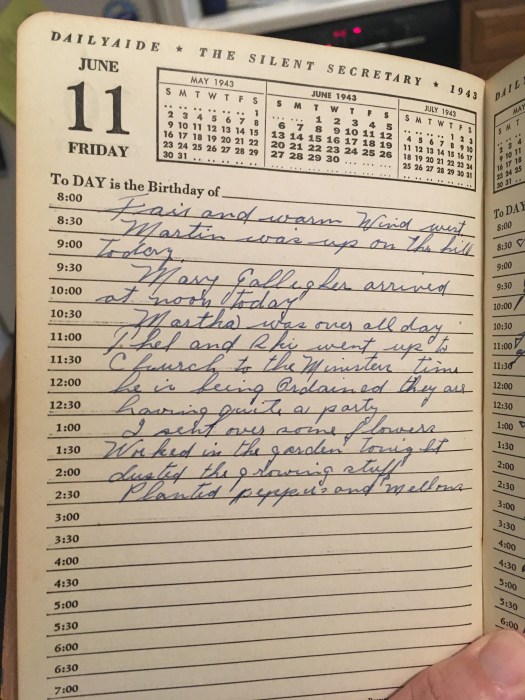 DAILYAIDE ★ THE SILENT SECRETARY ★ 1943
JUNE
11
FRIDAY
MAY 1943
S M T W T F S
.. .. .. .. .. .. 1
2 3 4 5 6 7 8
9 10 11 12 13 14 15
16 17 18 19 20 21 22
23 24 25 26 27 28 29
30 31 .. .. .. .. ..
JUNE 1943
S M T W T F S
.. .. 1 2 3 4 5
6 7 8 9 10 11 12
13 14 15 16 17 18 19
20 21 22 23 24 25 26
27 28 29 30 .. .. ..
JULY 1943
S M T W T F S
.. .. .. .. 1 2 3
4 5 6 7 8 9 10
11 12 13 14 15 16 17
18 19 20 21 22 23 24
25 26 27 28 29 30 31
To DAY is the Birthday of
8:00 Fair and warm Wind west
8:30 Martin was up on the hill
9:00 today
9:30 Mary Gallegher arrived
10:00 at noon today
10:30 Martha was over all day
11:00 and went up to
11:30 Church to the Minister time
12:00 he is being Ordained they are
12:30 having quite a party
1:00 I sent over some flowers
1:30 Worked in the garden tonight
2:00 dusted the growing stuff
2:30 Planted peppers and mellons
3:00
3:30
4:00
4:30
5:00
5:30
6:00
6:30
7:00
DAIL
MAY
To DAY
8:00
8:30
9:00
9:30
10:00
10:30
11:00
11:30
12:00
12:30
1:00
1:30
2:00
2:30
3:00
3:30
4:00
4:30
5:00
5:30
6:00